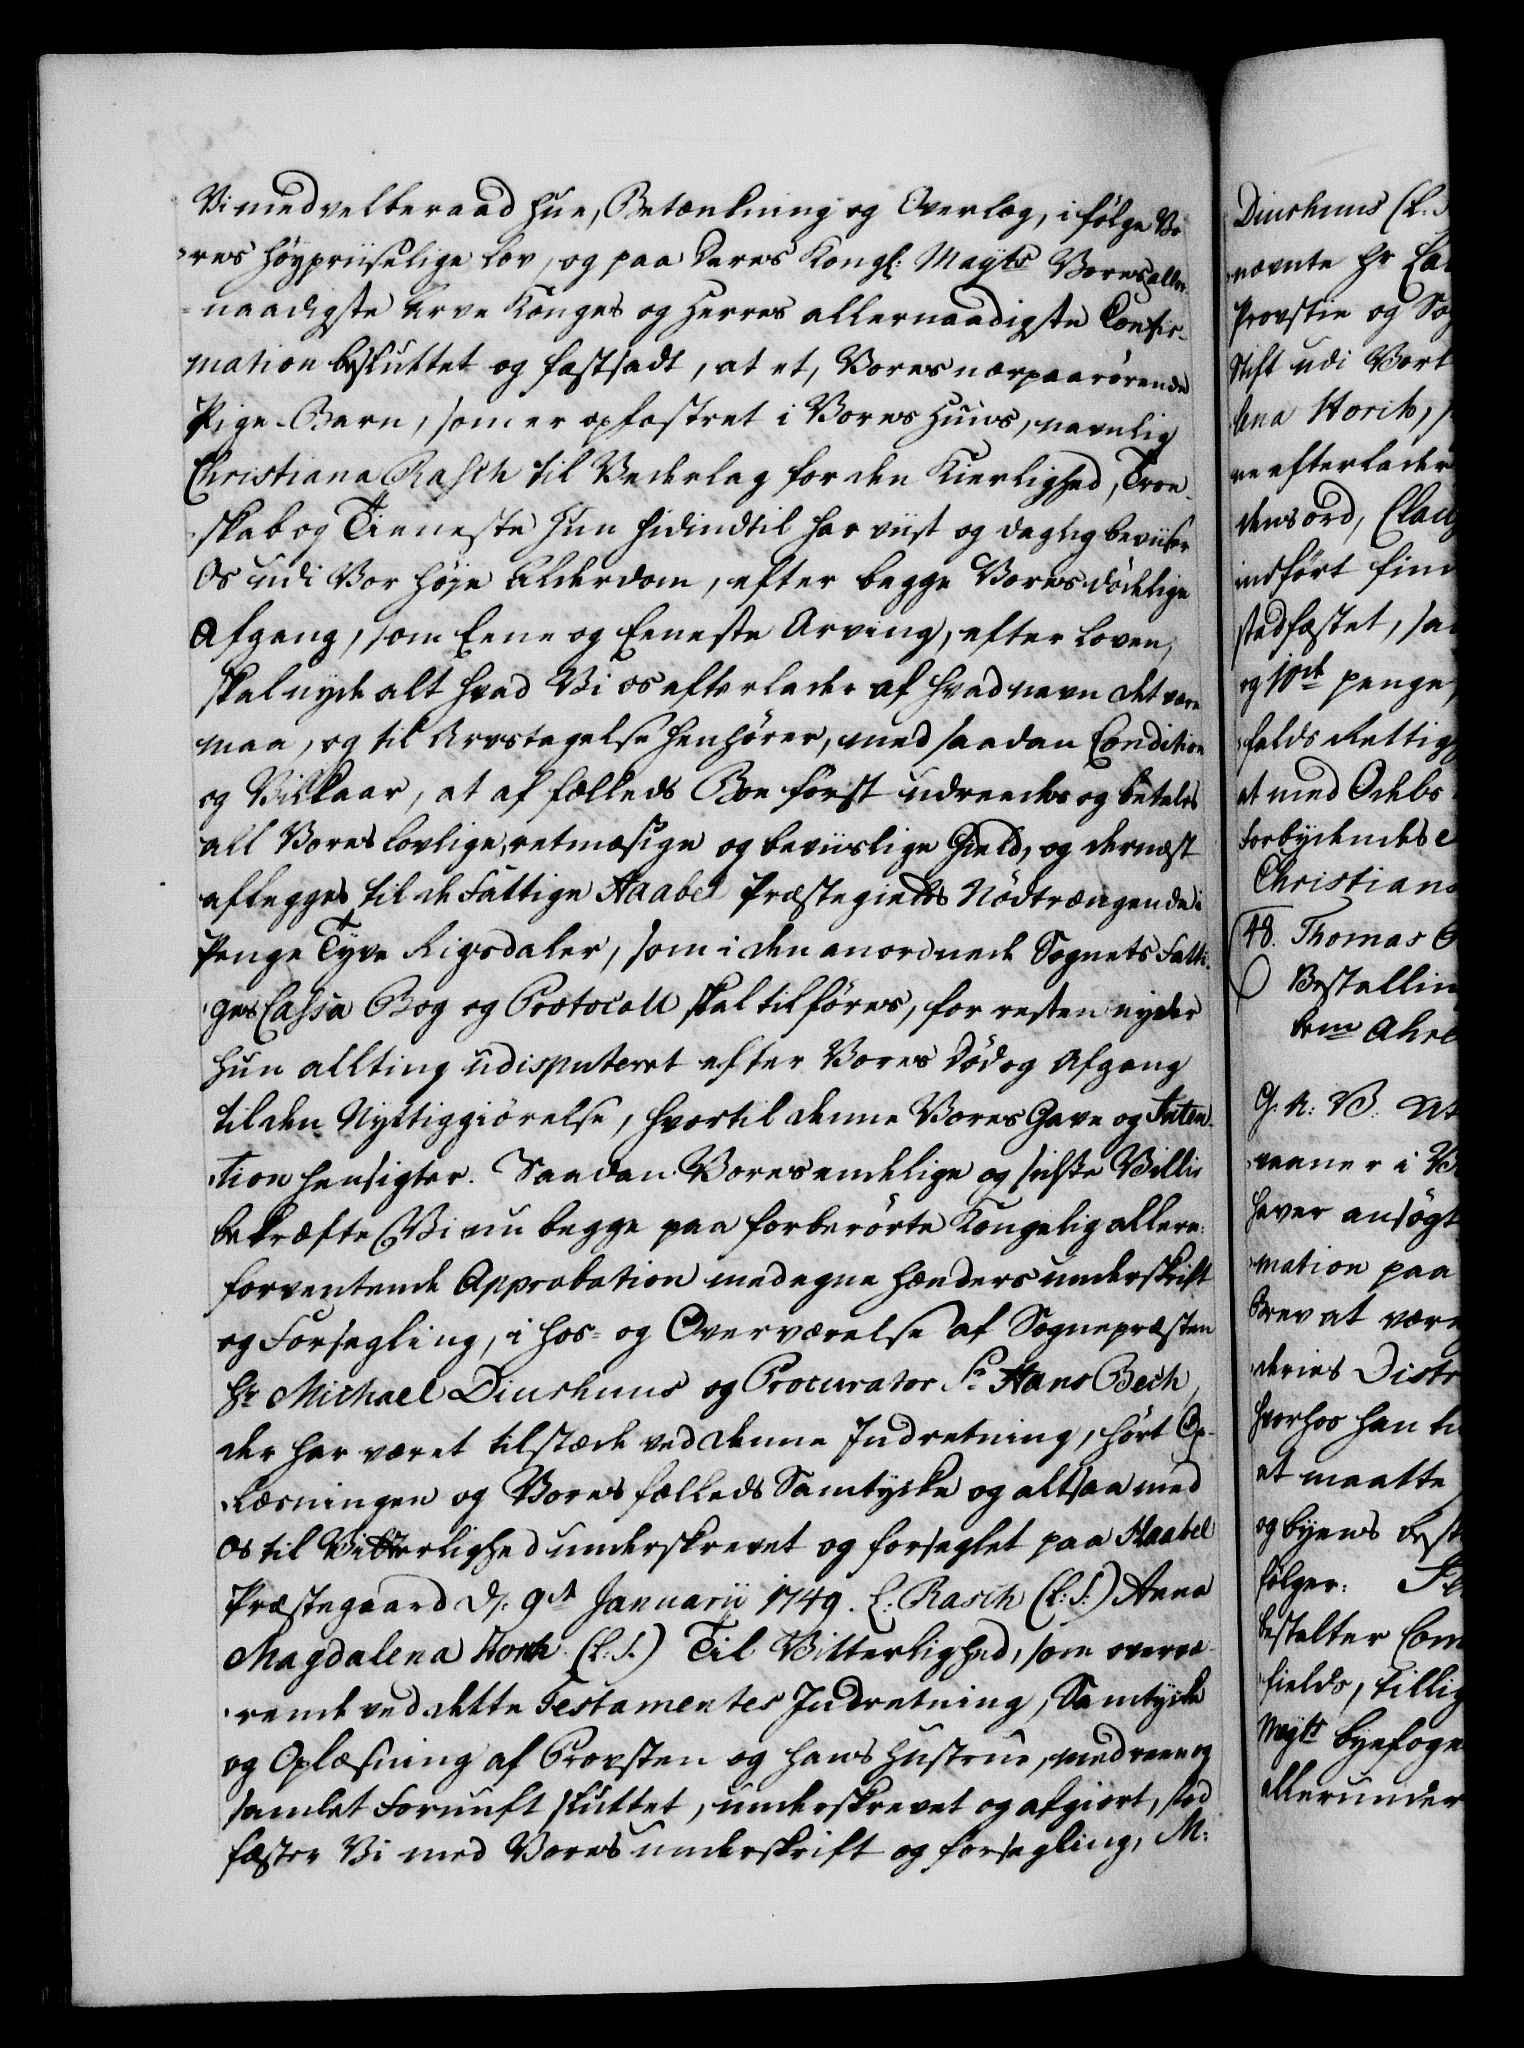 Vi med velberaad Hue, Betænkning og Overlæg, i følge Vo-
res høypriiselige Lov, og paa Deres Kongl: Mayts Vores aller-
naadigste Arve Konges og Herres allernaadigste Confir-
mation besluttet og fastsadt, at et, Vores nærpaarørende
Pige-Barn, som er opfostret i Vores Huus, navnlig
Christiana Rasch til Vederlag for den Kierlighed, Troe-
skab og Tieneste Hun hidindtil har viist og daglig beviiser
Os udi Vor høje Alderdom, efter begge Vores dødelige
Afgang, som Eene og Eeneste Arving, efter Loven,
skal nyde alt hvad Vi os efterlader af hvad navn det være
maa, og til Arvetagelse henhører, med saadan Condition
og Vilkaar, at af fælleds Boe først udreedes og betales
all Vores lovlige, retmæsige og beviislige Gield, og dernæst
aflegges til de Fattige Aabel Præstegields Nødtrængende i
Penge Tyve Rigsdaler, som i den anordnede Sognets Fatti-
ges Cassa Bog og Protocoll skal tilføres, for resten nyder
hun allting udisputeret efter Vores Død og Afgang
til den Nyttiggiørelse, hvortil denne Vores Gave og Inten-
tion hensigter. Saadan Vores endelige og sidste Villie
bekræfte Vi nu begge paa forberørte Kongelig allern:
forventende Approbation med egne Hænders underskrift
og Forsegling, i hos- og Overværelse af Sognepræsten
Hr Michael Dinckuus og Procurator Sr Hans Bech,
der har været tilstæde ved denne Indretning, hørt Op-
læsningen og Vores fælleds Samtykke og altsaa med
Os til Vitterlighed underskrevet og forseglet paa Aabel
Præstegaard d. 9de Januarii 1749. C: Rasch (L:S:) Anna
Magdalena Storch (L:S.) Til Vitterlighed, som overvæ-
rende ved dette Testamentes Indretning, Samtykke
og Oplæsning af Provsten og hans Hustrue, med reen og
samlet Fornuft sluttet, underskrevet og afgiort, stad-
fæster Vi med Vores underskrift og forsegling, M:
Dinckuus (L:
nævnte Hr
Provstie og
Stift udi Vort
lena Storch,
ne efterlader
dens ord,
indført
stadfæstet,
og 10de penge,
falds Rettig
at med Odels
Forbydendes
Christians
48. Thomas
Bestallin
G. A: V.
vaaner i
haver ansøgt
mation paa
Brev at være
deries Distr
hvorhos han
at maatte
og byens
følger:
bestalter Com
fields, tillig
Mayts byefoge
allerunder